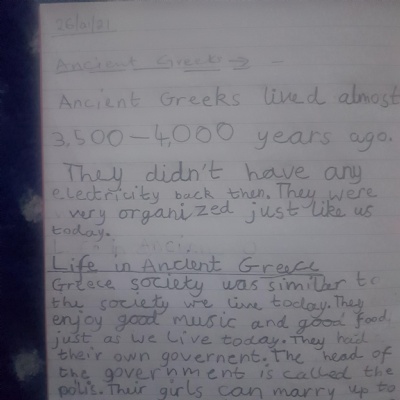 26/01/21
Ancient Greeks →
Ancient Greeks lived almost
3,500 – 4,000 years ago.
They didn't have any
electricity back then. They were
very organized just like us
today.
Life in Ancient Greece
Greece society was similar to
the society we live today. They
enjoy good music and good food
just as we live today. They had
their own governent. The head of
the government is called the
polis. Their girls can marry up to